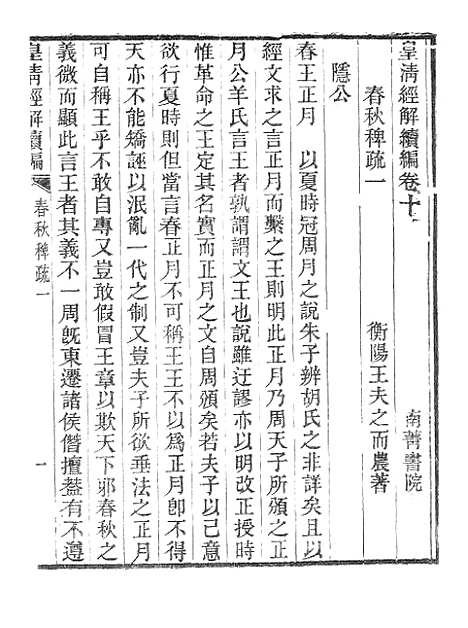 皇清經解續編卷十　南菁書院
春秋稗疏一　衡陽王夫之而農著
隱公
春王正月　以夏時冠周月之說朱子辨胡氏之非詳矣且以
經文求之言正月而繫之王則明此正月乃周天子所頒之正
月公羊氏言王者孰謂謂文王也說雖迂謬亦以明改正授時
惟革命之王定其名實而正月之文自周頒矣若夫子以己意
欲行夏時則但當言春正月不可稱王王不以爲正月卽不得
天亦不能矯誣以泯亂一代之制又豈夫子所欲垂法之正月
可自稱王乎不敢自專又豈敢假冒王章以欺天下邪春秋之
義微而顯此言王者其義不一周旣東遷諸侯僭擅葢有不遵
皇清經解續編　春秋稗疏一　一